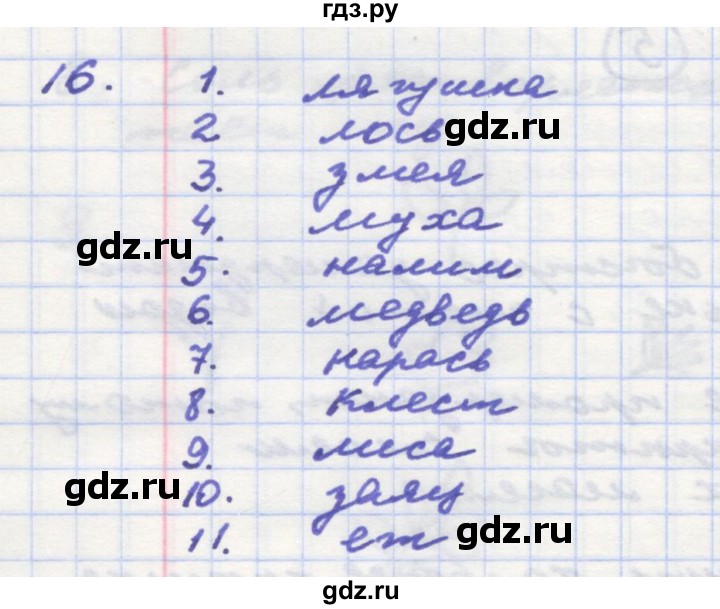 гдз.ру
16. 1. лягушка
2 лось
gdz.ru
3. змея
4. муха
gdz.ru
5. налим
6. медведь
7. карась
8. клест
9. лиса
gdz.ru
10. заяц
11. еж
gdz.ru
gdz.ru